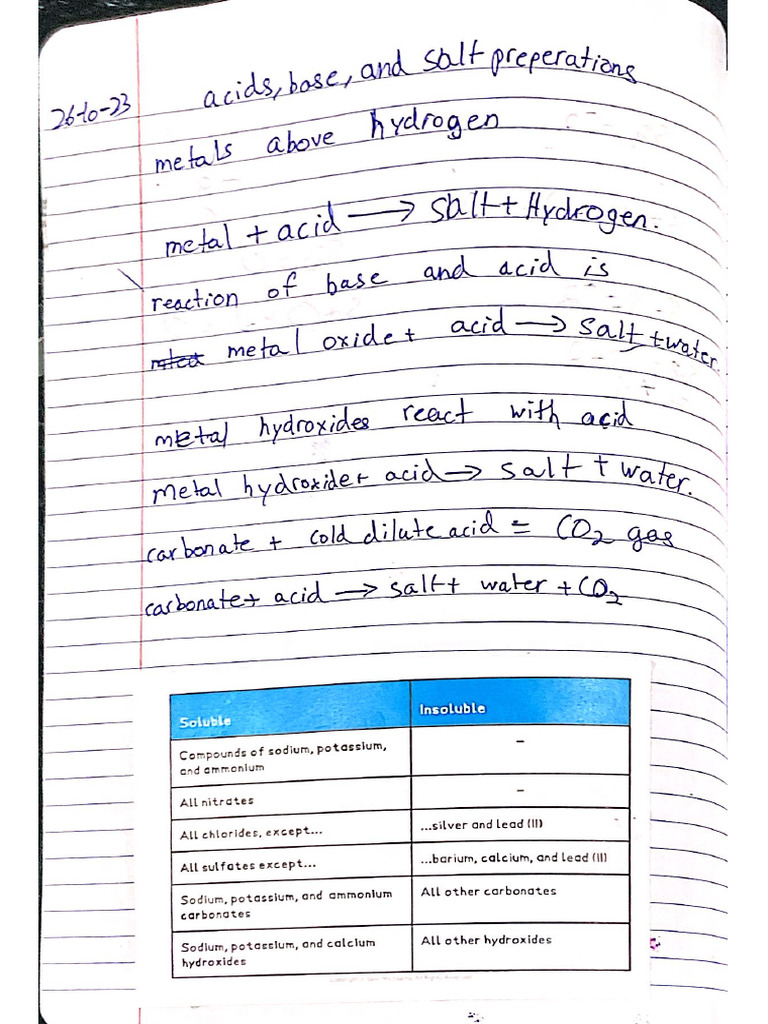 acids, base, and salt preperations
26-10-23
metals above hydrogen
metal + acid → salt + Hydrogen.
reaction of base and acid is
metal oxide + acid → salt + water.
metal hydroxides react with acid
metal hydroxide + acid → salt + water.
carbonate + cold dilute acid = CO₂ gas
carbonate + acid → salt + water + CO₂
Soluble Insoluble
Compounds of sodium, potassium, –
and ammonium
All nitrates –
All chlorides, except... ...silver and lead (II)
All sulfates except... ...barium, calcium, and lead (II)
Sodium, potassium, and ammonium All other carbonates
carbonates
Sodium, potassium, and calcium All other hydroxides
hydroxides